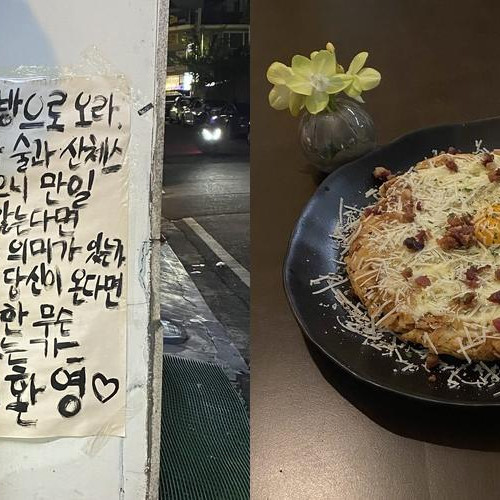 방으로 오라.
술과 산체스
니 만일
않는다면
의미가 있는가
당신이 온다면
한 무슨
는가_
환영♡